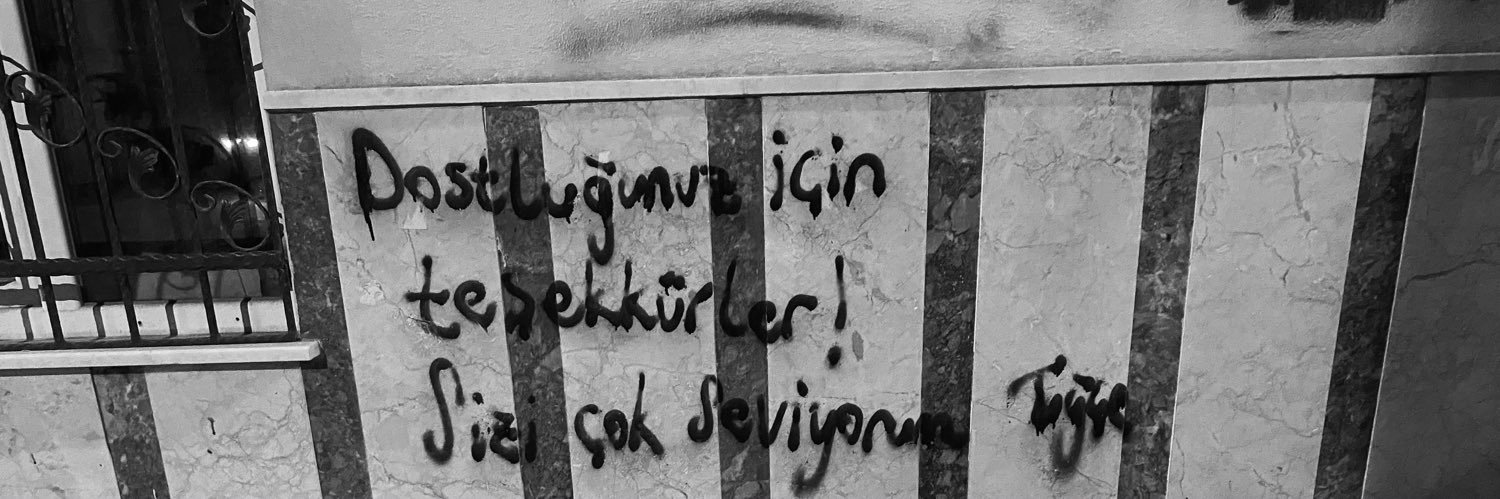 Dostluğunuz için
teşekkürler!
Sizi çok seviyorum Tuğçe